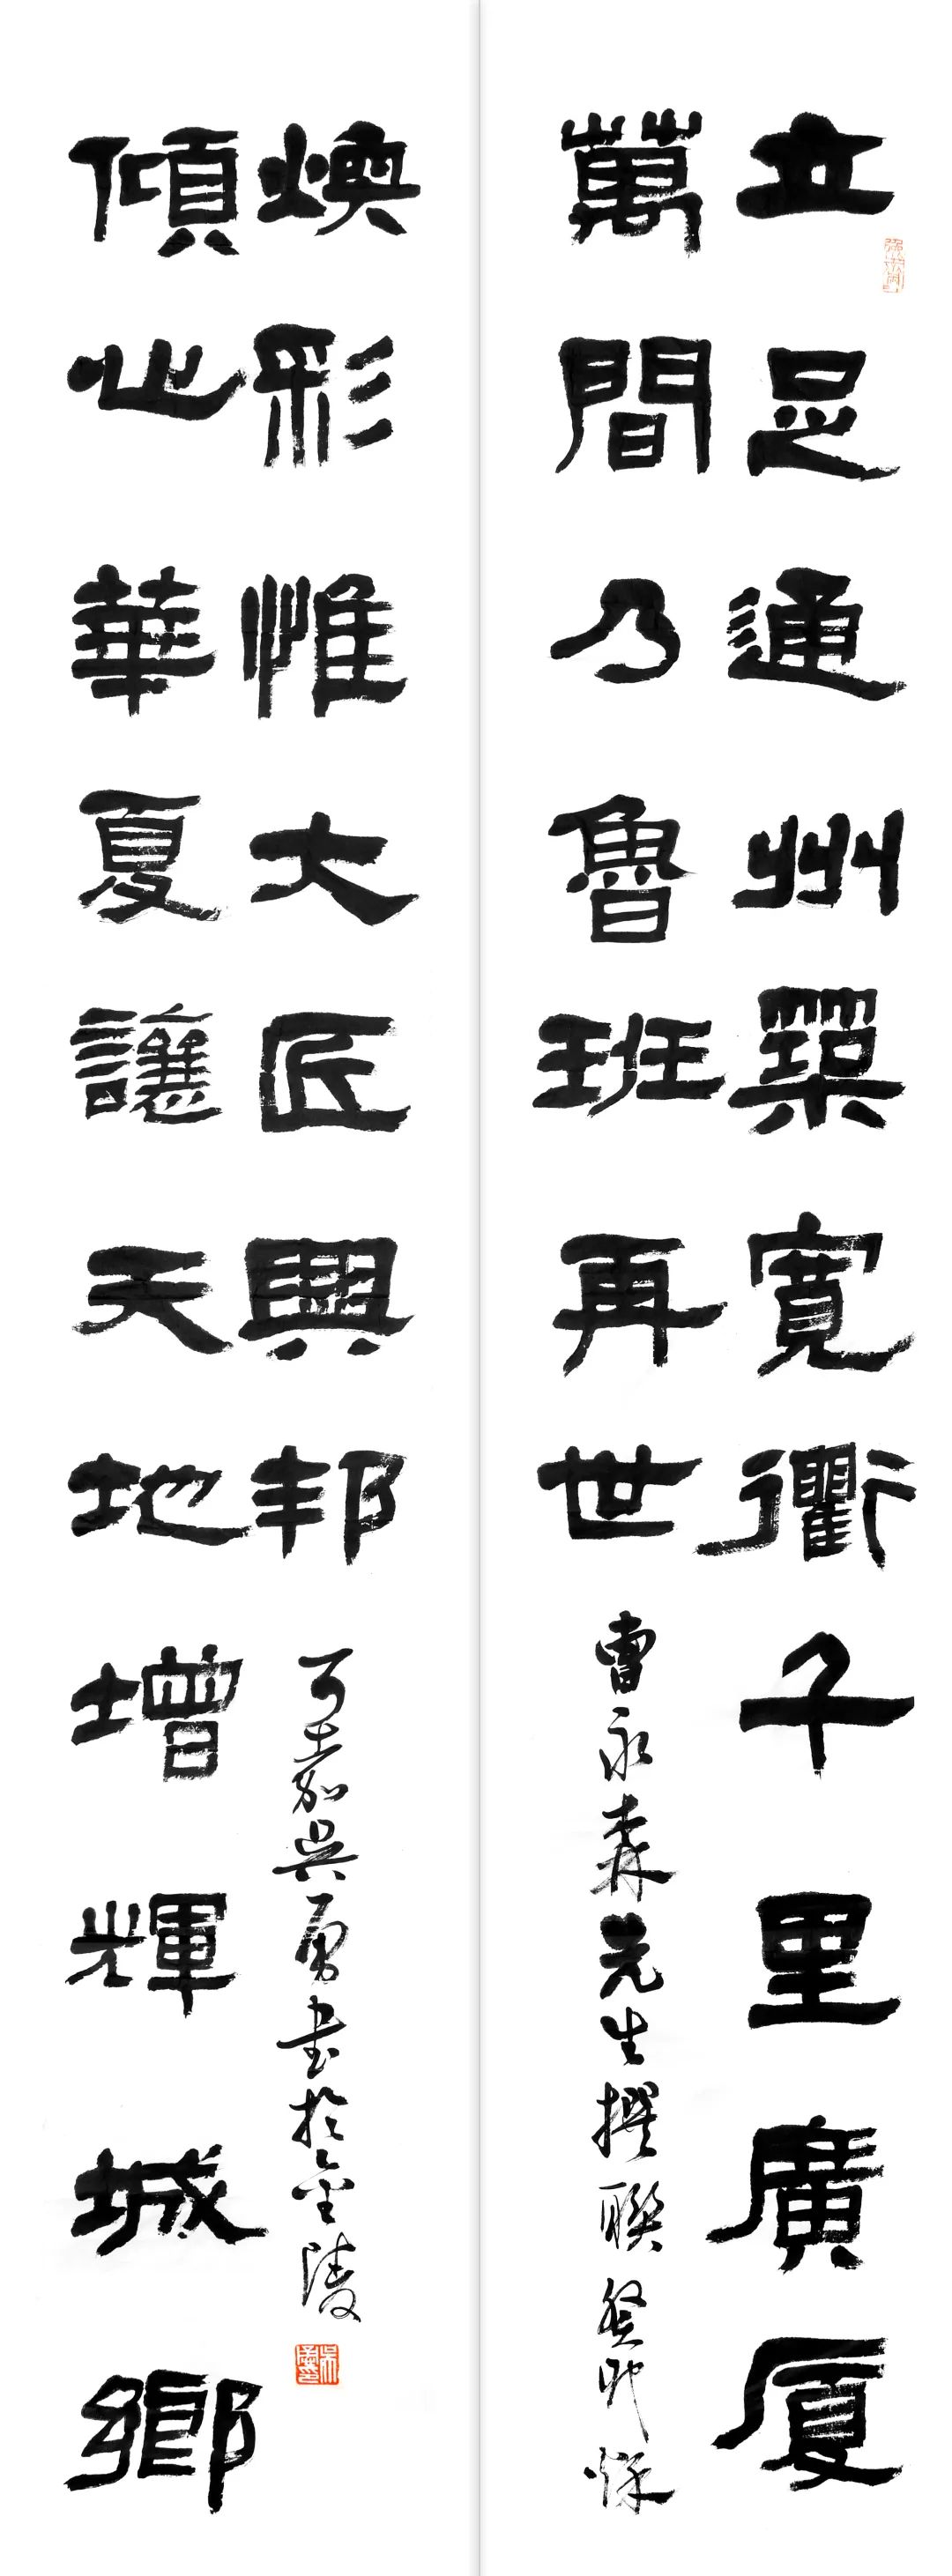 立足通州築寬衢千里廣厦
萬間乃魯班再世
曹永森先生撰聯癸卯秌
傾心華夏讓天地增輝城鄉
煥彩惟大匠興邦
可嘉吳勇書於金陵